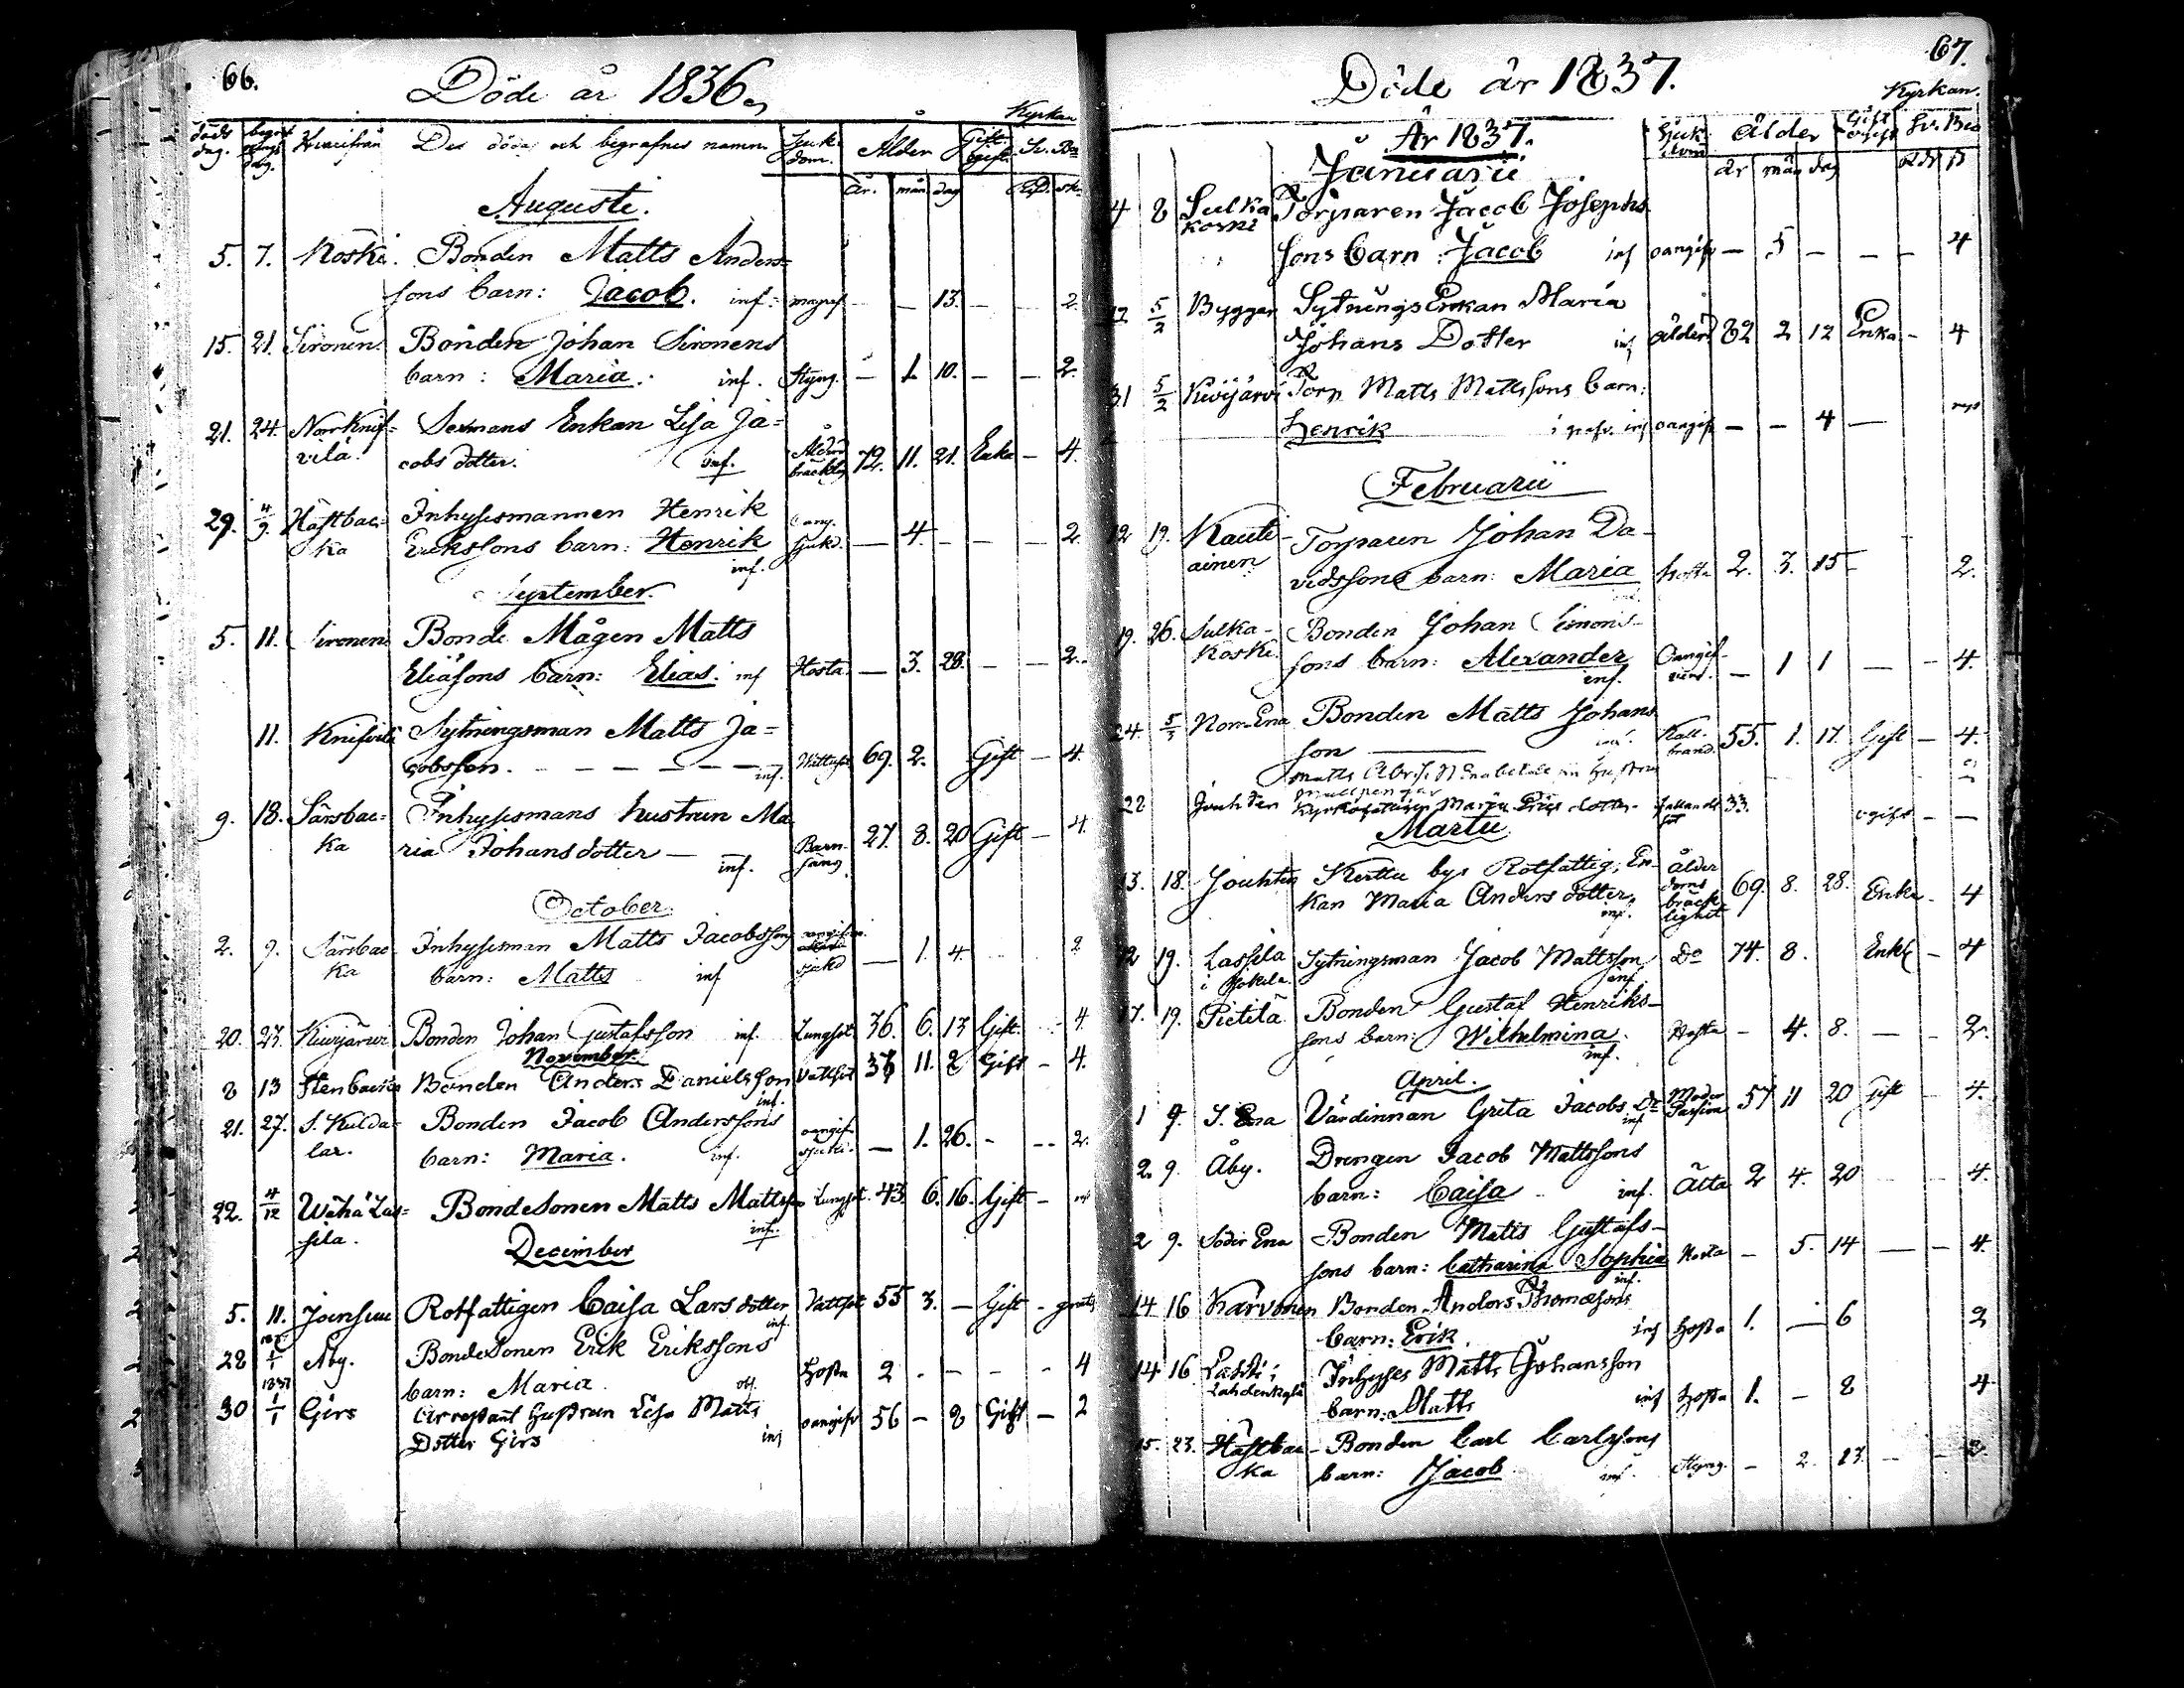 66.
Döde år 1836.
Kyrkan
döds dag. begrafnings dag. Hvarifrån Des döda och begrafnes namn Sjuk- dom. Ålder Gift ogift Sv. Bo
år. mån dag
Augusti.
5. 7. Koski. Bonden Matts Anders=
sons barn: Jacob. inf. — — 13. — — 2.
15. 21. Sironen. Bonden Johan Sironens
barn: Maria. inf. Styng. — 1. 10. — — 2.
21. 24. Norr Knif= Sexmans Enkan Lisa Ja=
vilä. cobs dotter. inf. Ålderd bräcklig 72. 11. 21. Enka — 4.
29. 4/9. Häst bac= Inhysesmannen Henrik
ka Erikssons barn: Henrik sjukd. — 4. — — — 2.
inf.
September.
5. 11. Sironen Bonde Mågen Matts
Eliäsons barn: Elias. inf Hosta. — 3. 28. — — 2.
11. Knifvilä Sytningsman Matts Ja=
cobsson. — — — — — — inf. Vattusot 69. 2. Gift — 4.
9. 18. Särsbac= Inhysesmans hustrun Ma
ka ria Johansdotter — inf. Barn- säng 27. 8. 20 Gift — 4.
October.
2. 9. Särsbac Inhysesman Matts Jacobssons
ka barn: Matts inf sjukd — 1. 4. 2
20. 23. Kiwijärwi Bonden Johan Gustafsson inf. Lungsot 36. 6. 13 Gift. 4.
November.
8 13 Stenbacka Bonden Anders Danielsson Vattsot 37 11. 2 Gift — 4.
inf.
21. 27. S. Kulda= Bonden Jacob Anderssons
lar. barn: Maria. inf. oangif. sjukd. — 1. 26. — — 2.
22. 4/12 Wähä Las= Bondesonen Matts Mattsson Lungsot. 43. 6. 16. Gift —
sila. inf.
December
5. 11. Joensuu Rotfattigen Caisa Lars dotter Vattsot 55 3. — Gift — gratis
inf.
28 1/1 Åby. Bondesonen Erik Erikssons
barn: Maria. Hosta 2 — — — 4
1837
30 1/1 Girs Arrestant hustrun Lisa Matts
Dotter Girs inf oangifv 56 — 8 Gift — 2
67.
Döde år 1837.
Kyrkan.
År 1837. Sjuk- dom Ålder Gift ogift Sv. Bo
Januarii år mån dag
4 8 Sulka Torparen Jacob Josephs
koski sons barn: Jacob inf oangifv — 5 — — — 4
5/2 Byggar Sytnings Enkan Maria
Johans Dotter inf ålderd 82 2 12 Enka — 4
31 5/2 Kiwijärvi Torp Matts Mattssons barn:
Henrik inf oangifv — — 4 —
Februarii
12 19. Kauti- Torparen Johan Da-
ainen vidssons barn: Maria hosta 2. 3. 15 — 2.
19. 26. Sulka- Bonden Johan Simons-
koski. sons barn: Alexander Oangif- — 1 1 — — 4.
inf.
24. 5/3 Norr-Ena Bonden Matts Johans
son —— inf. Kall- brand. 55. 1. 17. Gift — 4.
28 Jouhten Kyrkofattiga Maria Eriks dotter fallande sot 33. ogift — —
Martii
13. 18. Jouhten Kerttu bys Rotfattig, En-
kan Maria Anders dotter, inf. Ålder doms bräck- lighet 69. 8. 28. Enka — 4
12 19. Lassila Sytningsman Jacob Mattsson Do 74. 8. Enkl — 4
i Jokela. inf
17. 19. Pietilä Bonden Gustaf Henriks-
sons barn: Wilhelmina. Hosta — 4. 8. — — 2.
inf.
April.
1 9. S. Ena Värdinnan Greta Jacobs Dr Moder Passion 57 11 20 Gift — 4.
inf
2. 9. Åby. Drengen Jacob Mattssons
barn: Caisa inf. Ätta 2 4. 20 4.
2 9. Söder Ena Bonden Matts Gustafs-
sons barn: Catharina Sophia Hosta — 5. 14 — — 4.
inf.
14 16 Karvonen Bonden Anders Thomæsons
barn: Erik. inf hosta 1. — 6 2
14 16 Inhyses Matts Johansson
barn: Matts inf hosta 1. — 8 4
15. 23. Hästbac- Bonden Carl Carlssons
ka barn: Jacob inf. Styng. — 2. 13. — — 2.